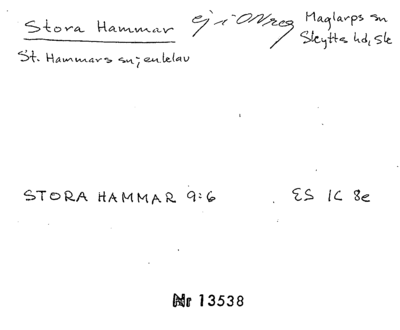 Stora Hammar ej i ONreg Maglarps sn
Skytts hd, Sk
St. Hammars sn; enklav
STORA HAMMAR 9:6 ES 1C 8e
Nr 13538